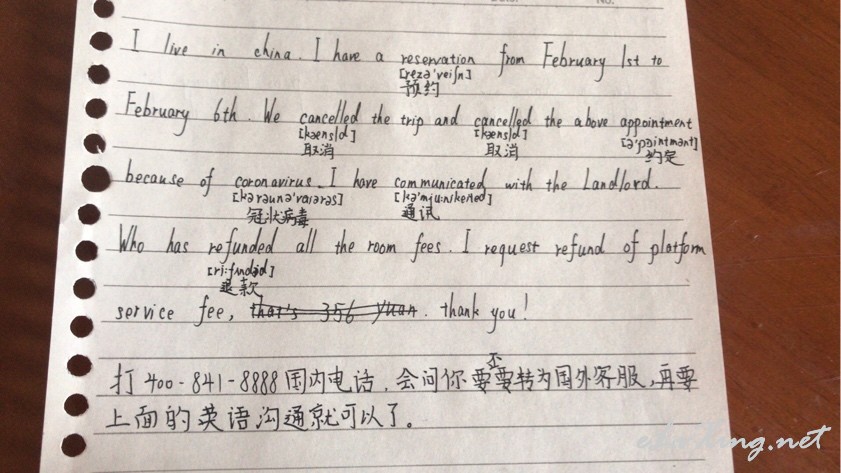 No.
I live in china. I have a reservation from February 1st to
[rezə'veiʃn]
预约
February 6th. We cancelled the trip and cancelled the above appointment
[kænsld] [kænsld] [ə'pɔintmənt]
取消 取消 约定
because of coronavirus. I have communicated with the Landlord.
[kərəunə'vaiərəs] [kə'mju:nikeited]
冠状病毒 通讯
Who has refunded all the room fees. I request refund of platform
[ri:fʌndəd]
退款
service fee, that's 356 Yuan. thank you!
打 400-841-8888 国内电话,会问你要否要转为国外客服,再要
上面的英语沟通就可以了。